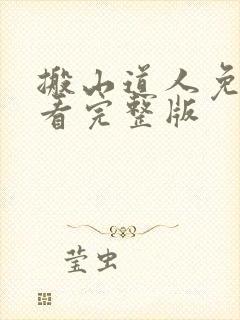 搬山道人免
看完整版
莹虫